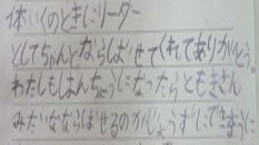 体いくのときにリーダー
としてちゃんとならばせてくれてありがとう。
わたしもはんちょうになったらともきさん
みたいなならばせるのがじょうずにできるように